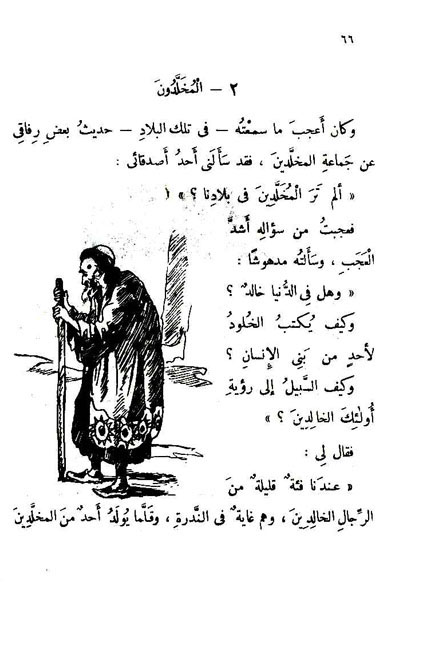 ٦٦
٢ – الْمُخَلَّدُونَ
وكان أَعجبَ ما سمعْتُه – فى تلك البلادِ – حديثُ بعضِ رِفاقِي
عن جَماعةِ المخلَّدينَ ، فقد سَأَلَنى أَحدُ أَصدقائى :
« ألم تَرَ الْمُخَلَّدِينَ فى بلادِنا ؟ » (
فعجبتُ من سؤالِه أَشدَّ
الْعَجَبِ ، وسَأَلتُه مدهوشًا :
« وهل فِى الدُّنيا خالدٌ ؟
وكيف يُكتبُ الخُلودُ
لأحدٍ من بَنِى الإِنسانِ ؟
وكيف السَّبيلُ إلى رؤيةِ
أُولٰئِكَ الخالِدِينَ ؟ »
فقال لِى :
« عندَنا فئةٌ قليلةٌ منَ
الرِّجالِ الخالِدِينَ ، وهم غايةٌ فى النَّدرةِ ، وقَلَّما يُولَدُ أَحدٌ منَ المخلَّدِينَ